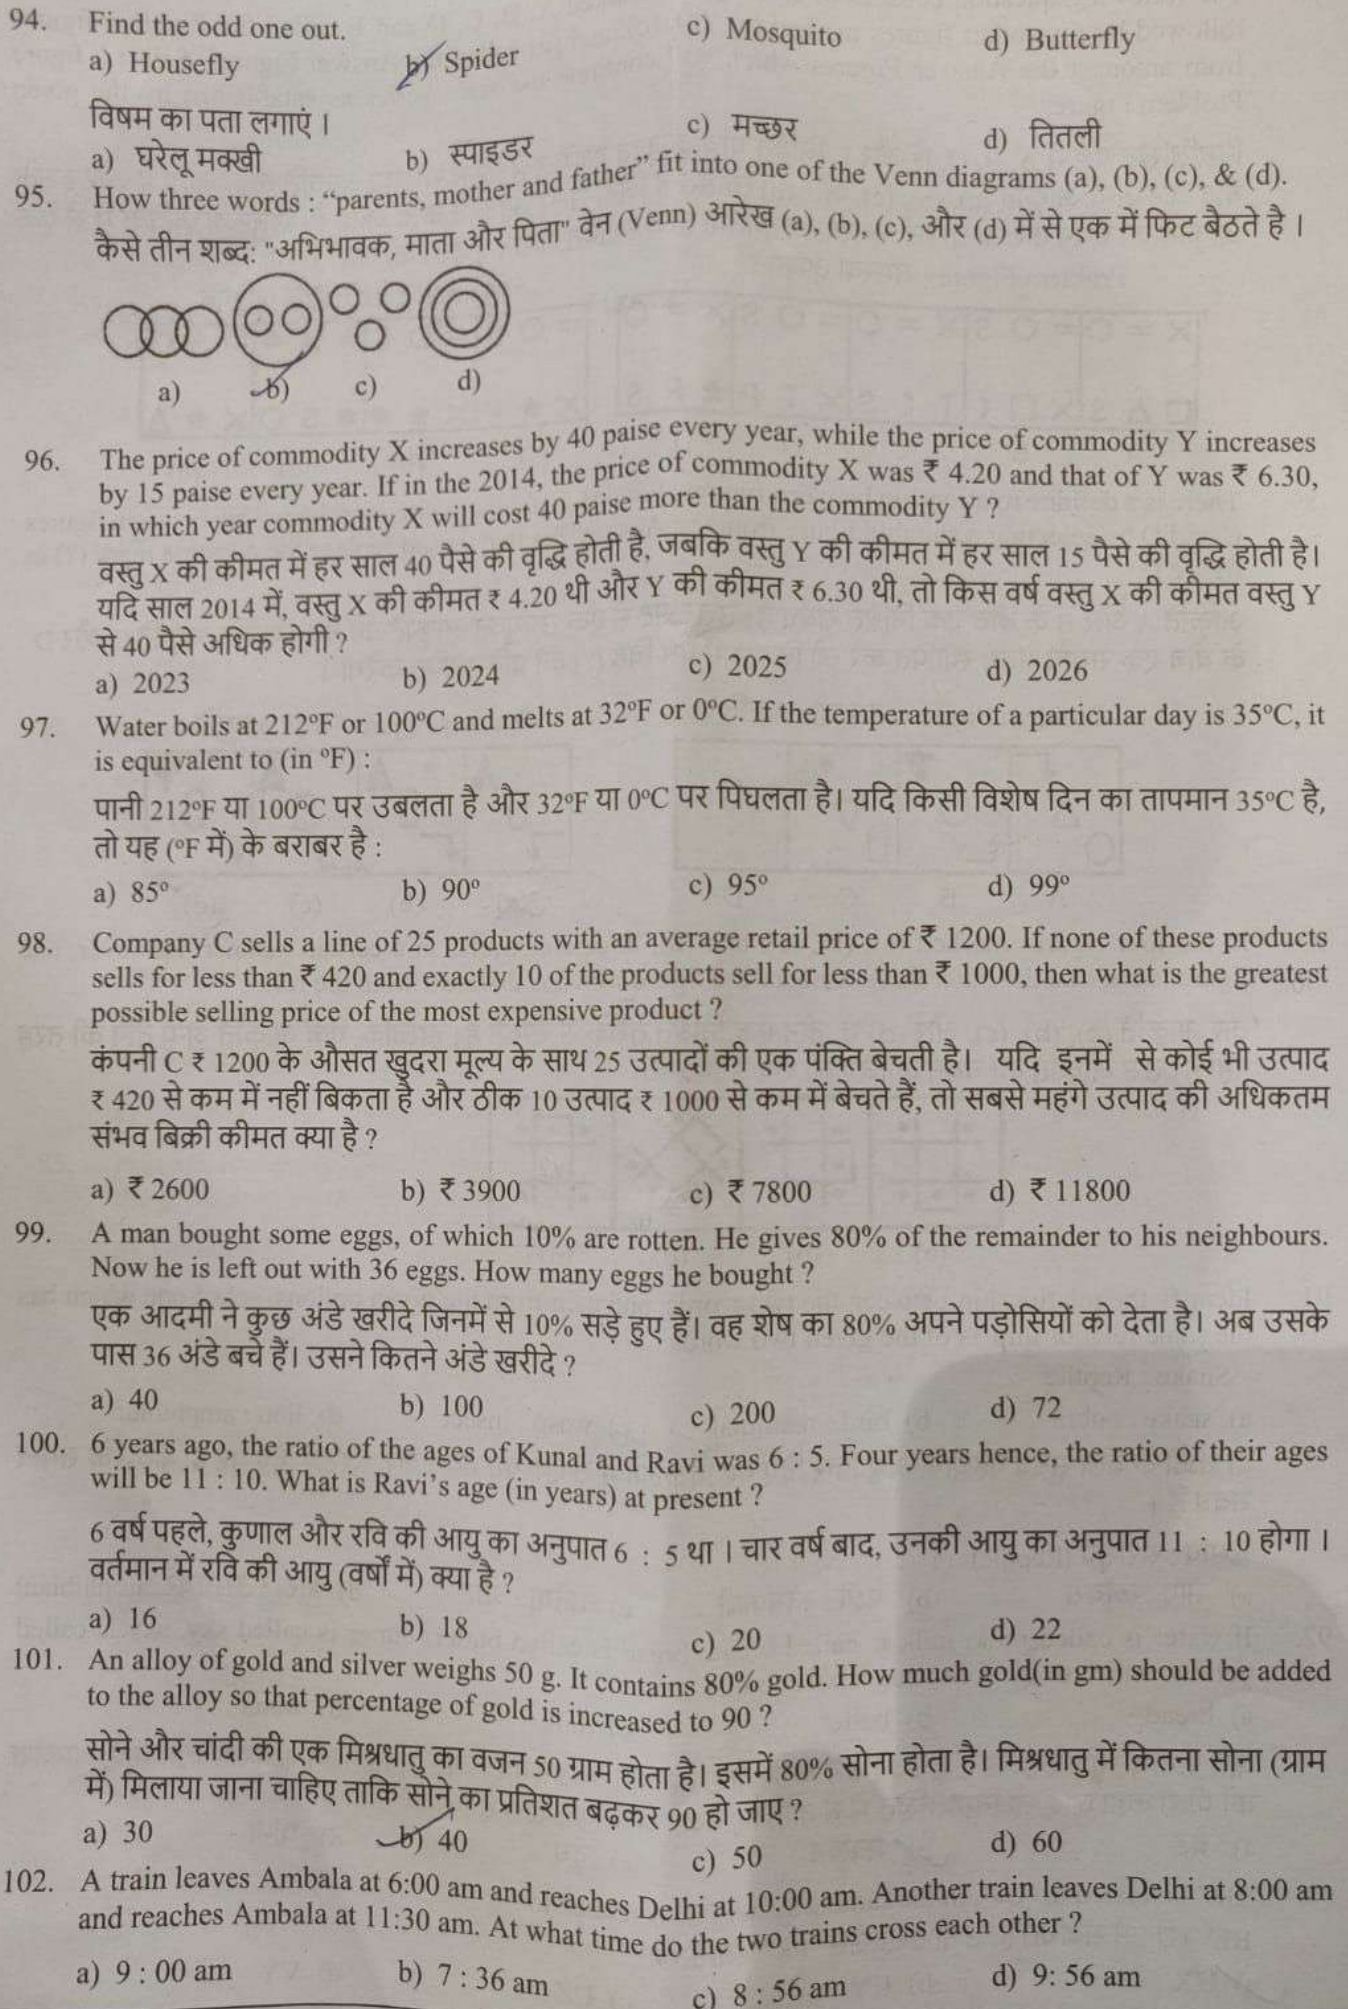 94. Find the odd one out.
a) Housefly b) Spider c) Mosquito d) Butterfly
विषम का पता लगाएं ।
a) घरेलू मक्खी b) स्पाइडर c) मच्छर d) तितली
95. How three words : “parents, mother and father” fit into one of the Venn diagrams (a), (b), (c), & (d).
कैसे तीन शब्द: "अभिभावक, माता और पिता" वेन (Venn) आरेख (a), (b), (c), और (d) में से एक में फिट बैठते है ।
a) b) c) d)
96. The price of commodity X increases by 40 paise every year, while the price of commodity Y increases
by 15 paise every year. If in the 2014, the price of commodity X was ₹ 4.20 and that of Y was ₹ 6.30,
in which year commodity X will cost 40 paise more than the commodity Y ?
वस्तु X की कीमत में हर साल 40 पैसे की वृद्धि होती है, जबकि वस्तु Y की कीमत में हर साल 15 पैसे की वृद्धि होती है।
यदि साल 2014 में, वस्तु X की कीमत ₹ 4.20 थी और Y की कीमत ₹ 6.30 थी, तो किस वर्ष वस्तु X की कीमत वस्तु Y
से 40 पैसे अधिक होगी ?
a) 2023 b) 2024 c) 2025 d) 2026
97. Water boils at 212ºF or 100ºC and melts at 32ºF or 0ºC. If the temperature of a particular day is 35ºC, it
is equivalent to (in ºF) :
पानी 212ºF या 100ºC पर उबलता है और 32ºF या 0ºC पर पिघलता है। यदि किसी विशेष दिन का तापमान 35ºC है,
तो यह (ºF में) के बराबर है :
a) 85º b) 90º c) 95º d) 99º
98. Company C sells a line of 25 products with an average retail price of ₹ 1200. If none of these products
sells for less than ₹ 420 and exactly 10 of the products sell for less than ₹ 1000, then what is the greatest
possible selling price of the most expensive product ?
कंपनी C ₹ 1200 के औसत खुदरा मूल्य के साथ 25 उत्पादों की एक पंक्ति बेचती है। यदि इनमें से कोई भी उत्पाद
₹ 420 से कम में नहीं बिकता है और ठीक 10 उत्पाद ₹ 1000 से कम में बेचते हैं, तो सबसे महंगे उत्पाद की अधिकतम
संभव बिक्री कीमत क्या है ?
a) ₹ 2600 b) ₹ 3900 c) ₹ 7800 d) ₹ 11800
99. A man bought some eggs, of which 10% are rotten. He gives 80% of the remainder to his neighbours.
Now he is left out with 36 eggs. How many eggs he bought ?
एक आदमी ने कुछ अंडे खरीदे जिनमें से 10% सड़े हुए हैं। वह शेष का 80% अपने पड़ोसियों को देता है। अब उसके
पास 36 अंडे बचे हैं। उसने कितने अंडे खरीदे ?
a) 40 b) 100 c) 200 d) 72
100. 6 years ago, the ratio of the ages of Kunal and Ravi was 6 : 5. Four years hence, the ratio of their ages
will be 11 : 10. What is Ravi’s age (in years) at present ?
6 वर्ष पहले, कुणाल और रवि की आयु का अनुपात 6 : 5 था । चार वर्ष बाद, उनकी आयु का अनुपात 11 : 10 होगा ।
वर्तमान में रवि की आयु (वर्षों में) क्या है ?
a) 16 b) 18 c) 20 d) 22
101. An alloy of gold and silver weighs 50 g. It contains 80% gold. How much gold(in gm) should be added
to the alloy so that percentage of gold is increased to 90 ?
सोने और चांदी की एक मिश्रधातु का वजन 50 ग्राम होता है। इसमें 80% सोना होता है। मिश्रधातु में कितना सोना (ग्राम
में) मिलाया जाना चाहिए ताकि सोने का प्रतिशत बढ़कर 90 हो जाए ?
a) 30 b) 40 c) 50 d) 60
102. A train leaves Ambala at 6:00 am and reaches Delhi at 10:00 am. Another train leaves Delhi at 8:00 am
and reaches Ambala at 11:30 am. At what time do the two trains cross each other ?
a) 9 : 00 am b) 7 : 36 am c) 8 : 56 am d) 9: 56 am